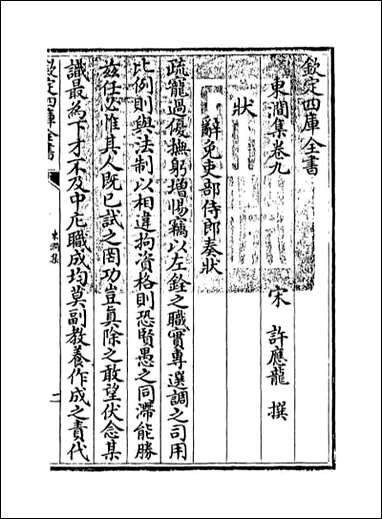 欽定四庫全書
東澗集卷九
宋 許應龍 撰
狀
辭免吏部侍郎奏狀
疏寵過優撫躬增惕竊以左銓之職實專選調之司用
比例則與法制以相違拘資格則恐賢愚之同滯能勝
兹任必惟其人既已試之罔功豈真除之敢望伏念某
識最為下才不及中庀職成均莫副教養作成之責代
欽定四庫全書
東澗集
一